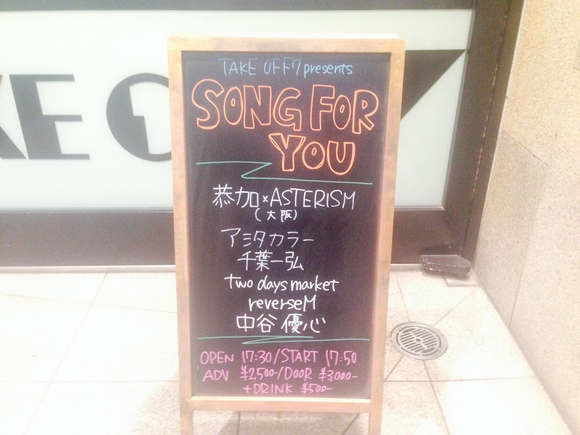 TAKE OFF7 presents
SONG FOR
YOU
恭加×ASTERISM
(大阪)
アシタカラー
千葉一弘
two days market
reverseM
中谷 優心
OPEN 17:30/START 17:50
ADV ¥2500-/DOOR ¥3000-
+DRINK ¥500-